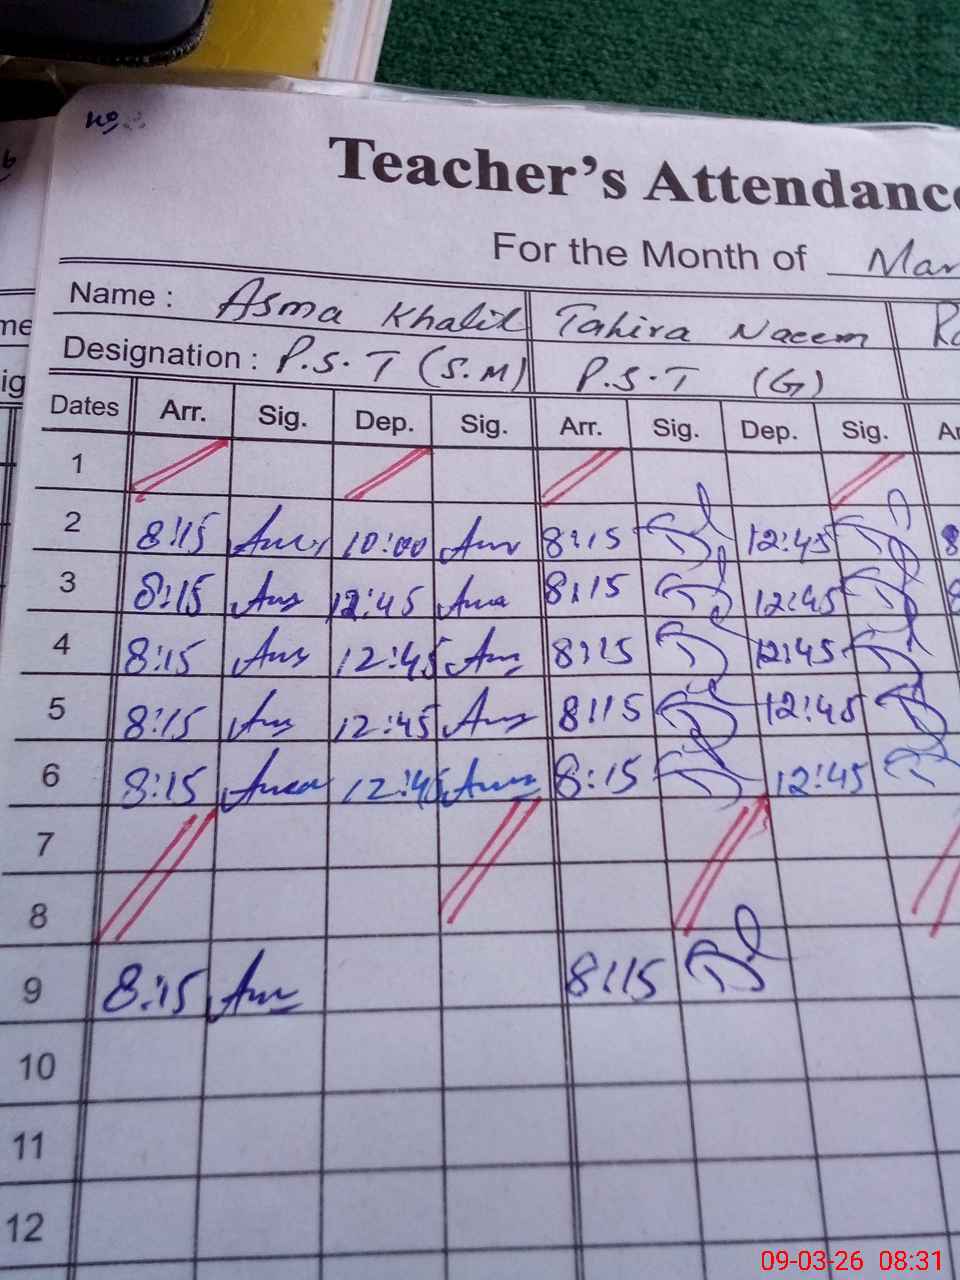 No
Teacher's Attendanc
For the Month of Mar
Name : Asma Khalil Tahira Naeem Ra
Designation : P.S.T (S.M) P.S.T (G)
Dates Arr. Sig. Dep. Sig. Arr. Sig. Dep. Sig. Ar
1
2 8:15 10:00 8:15 12:45 8
3 8:15 12:45 8:15 12:45 8
4 8:15 12:45 8:15 12:45
5 8:15 12:45 8:15 12:45
6 8:15 12:45 8:15 12:45
7
8
9 8:15 8:15
10
11
12
09-03-26 08:31